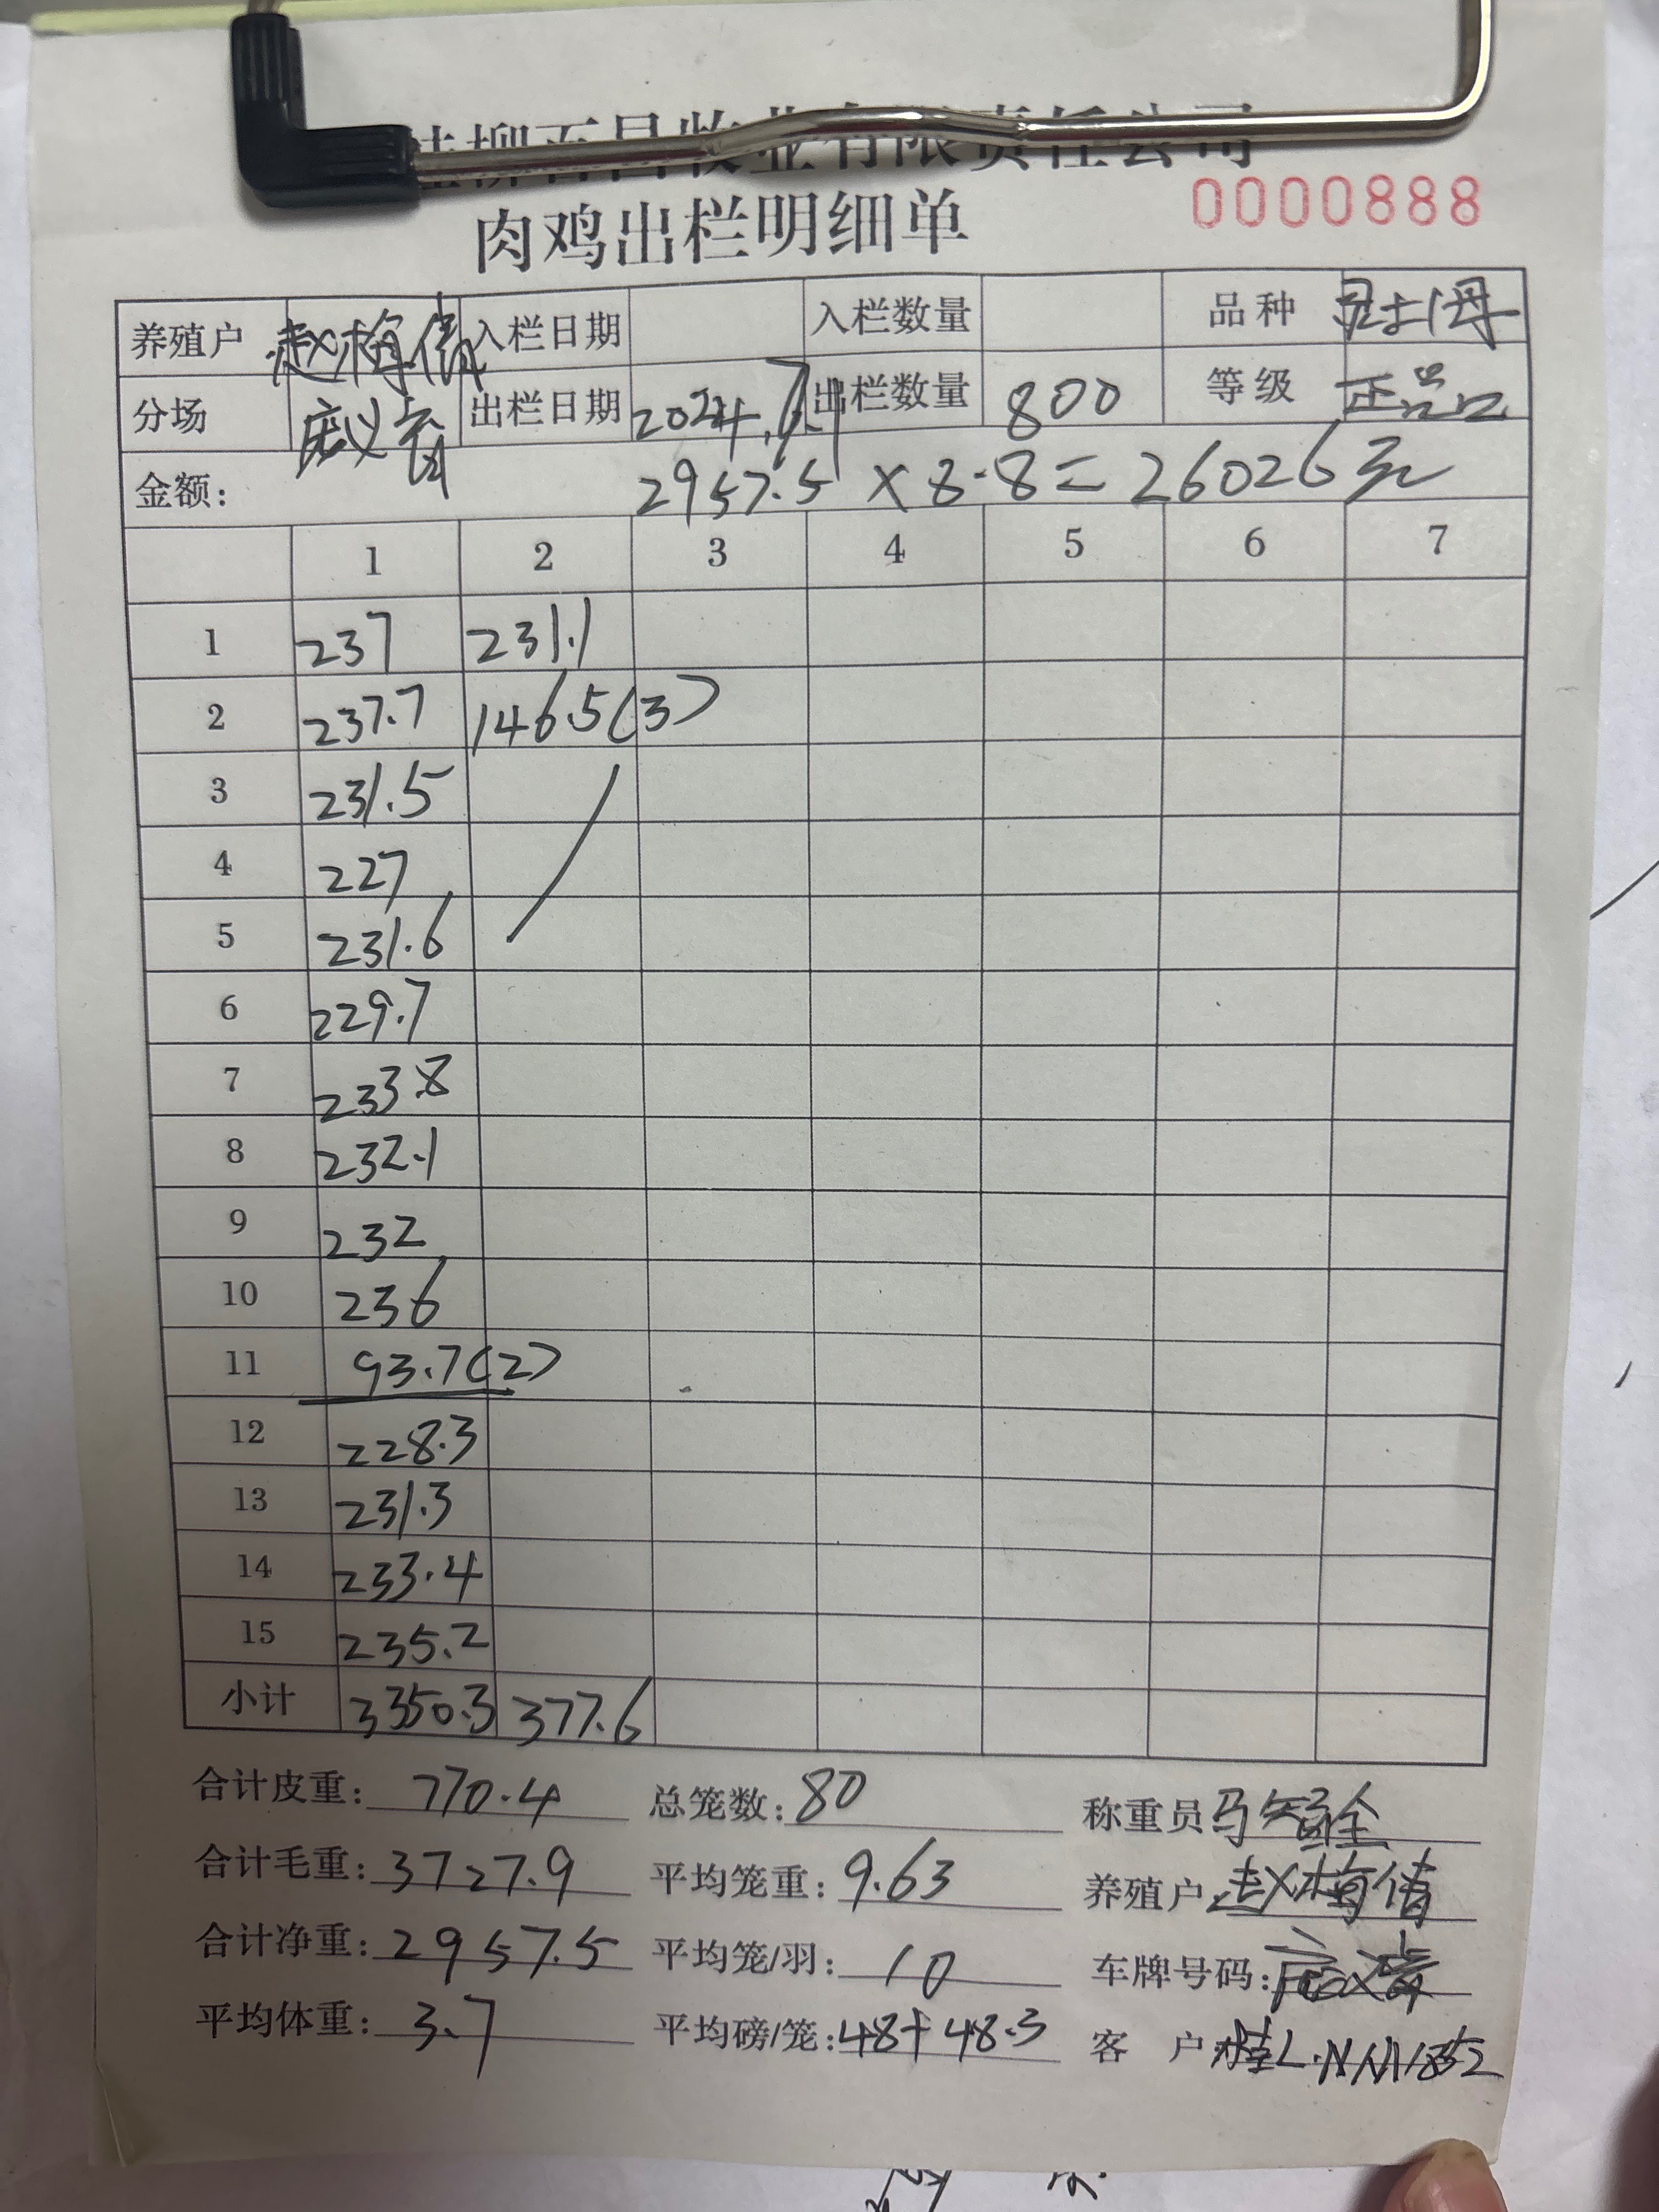 牧业有限责任公司
肉鸡出栏明细单
0000888
养殖户 赵梅倩 入栏日期 入栏数量 品种
分场 出栏日期 2024.7. 出栏数量 800 等级 正品
金额: 2957.5 × 8.8 = 26026元
1 2 3 4 5 6 7
1 237 231.1
2 237.7 146.5(3)
3 231.5
4 227
5 231.6
6 229.7
7 233.8
8 232.1
9 232
10 236
11 93.7(2)
12 228.3
13 231.3
14 233.4
15 235.2
小计 3350.3 377.6
合计皮重: 770.4 总笼数: 80 称重员 马智全
合计毛重: 3727.9 平均笼重: 9.63 养殖户 赵梅倩
合计净重: 2957.5 平均笼/羽: 10 车牌号码:
平均体重: 3.7 平均磅/笼: 48+48.3 客 户 桂L.